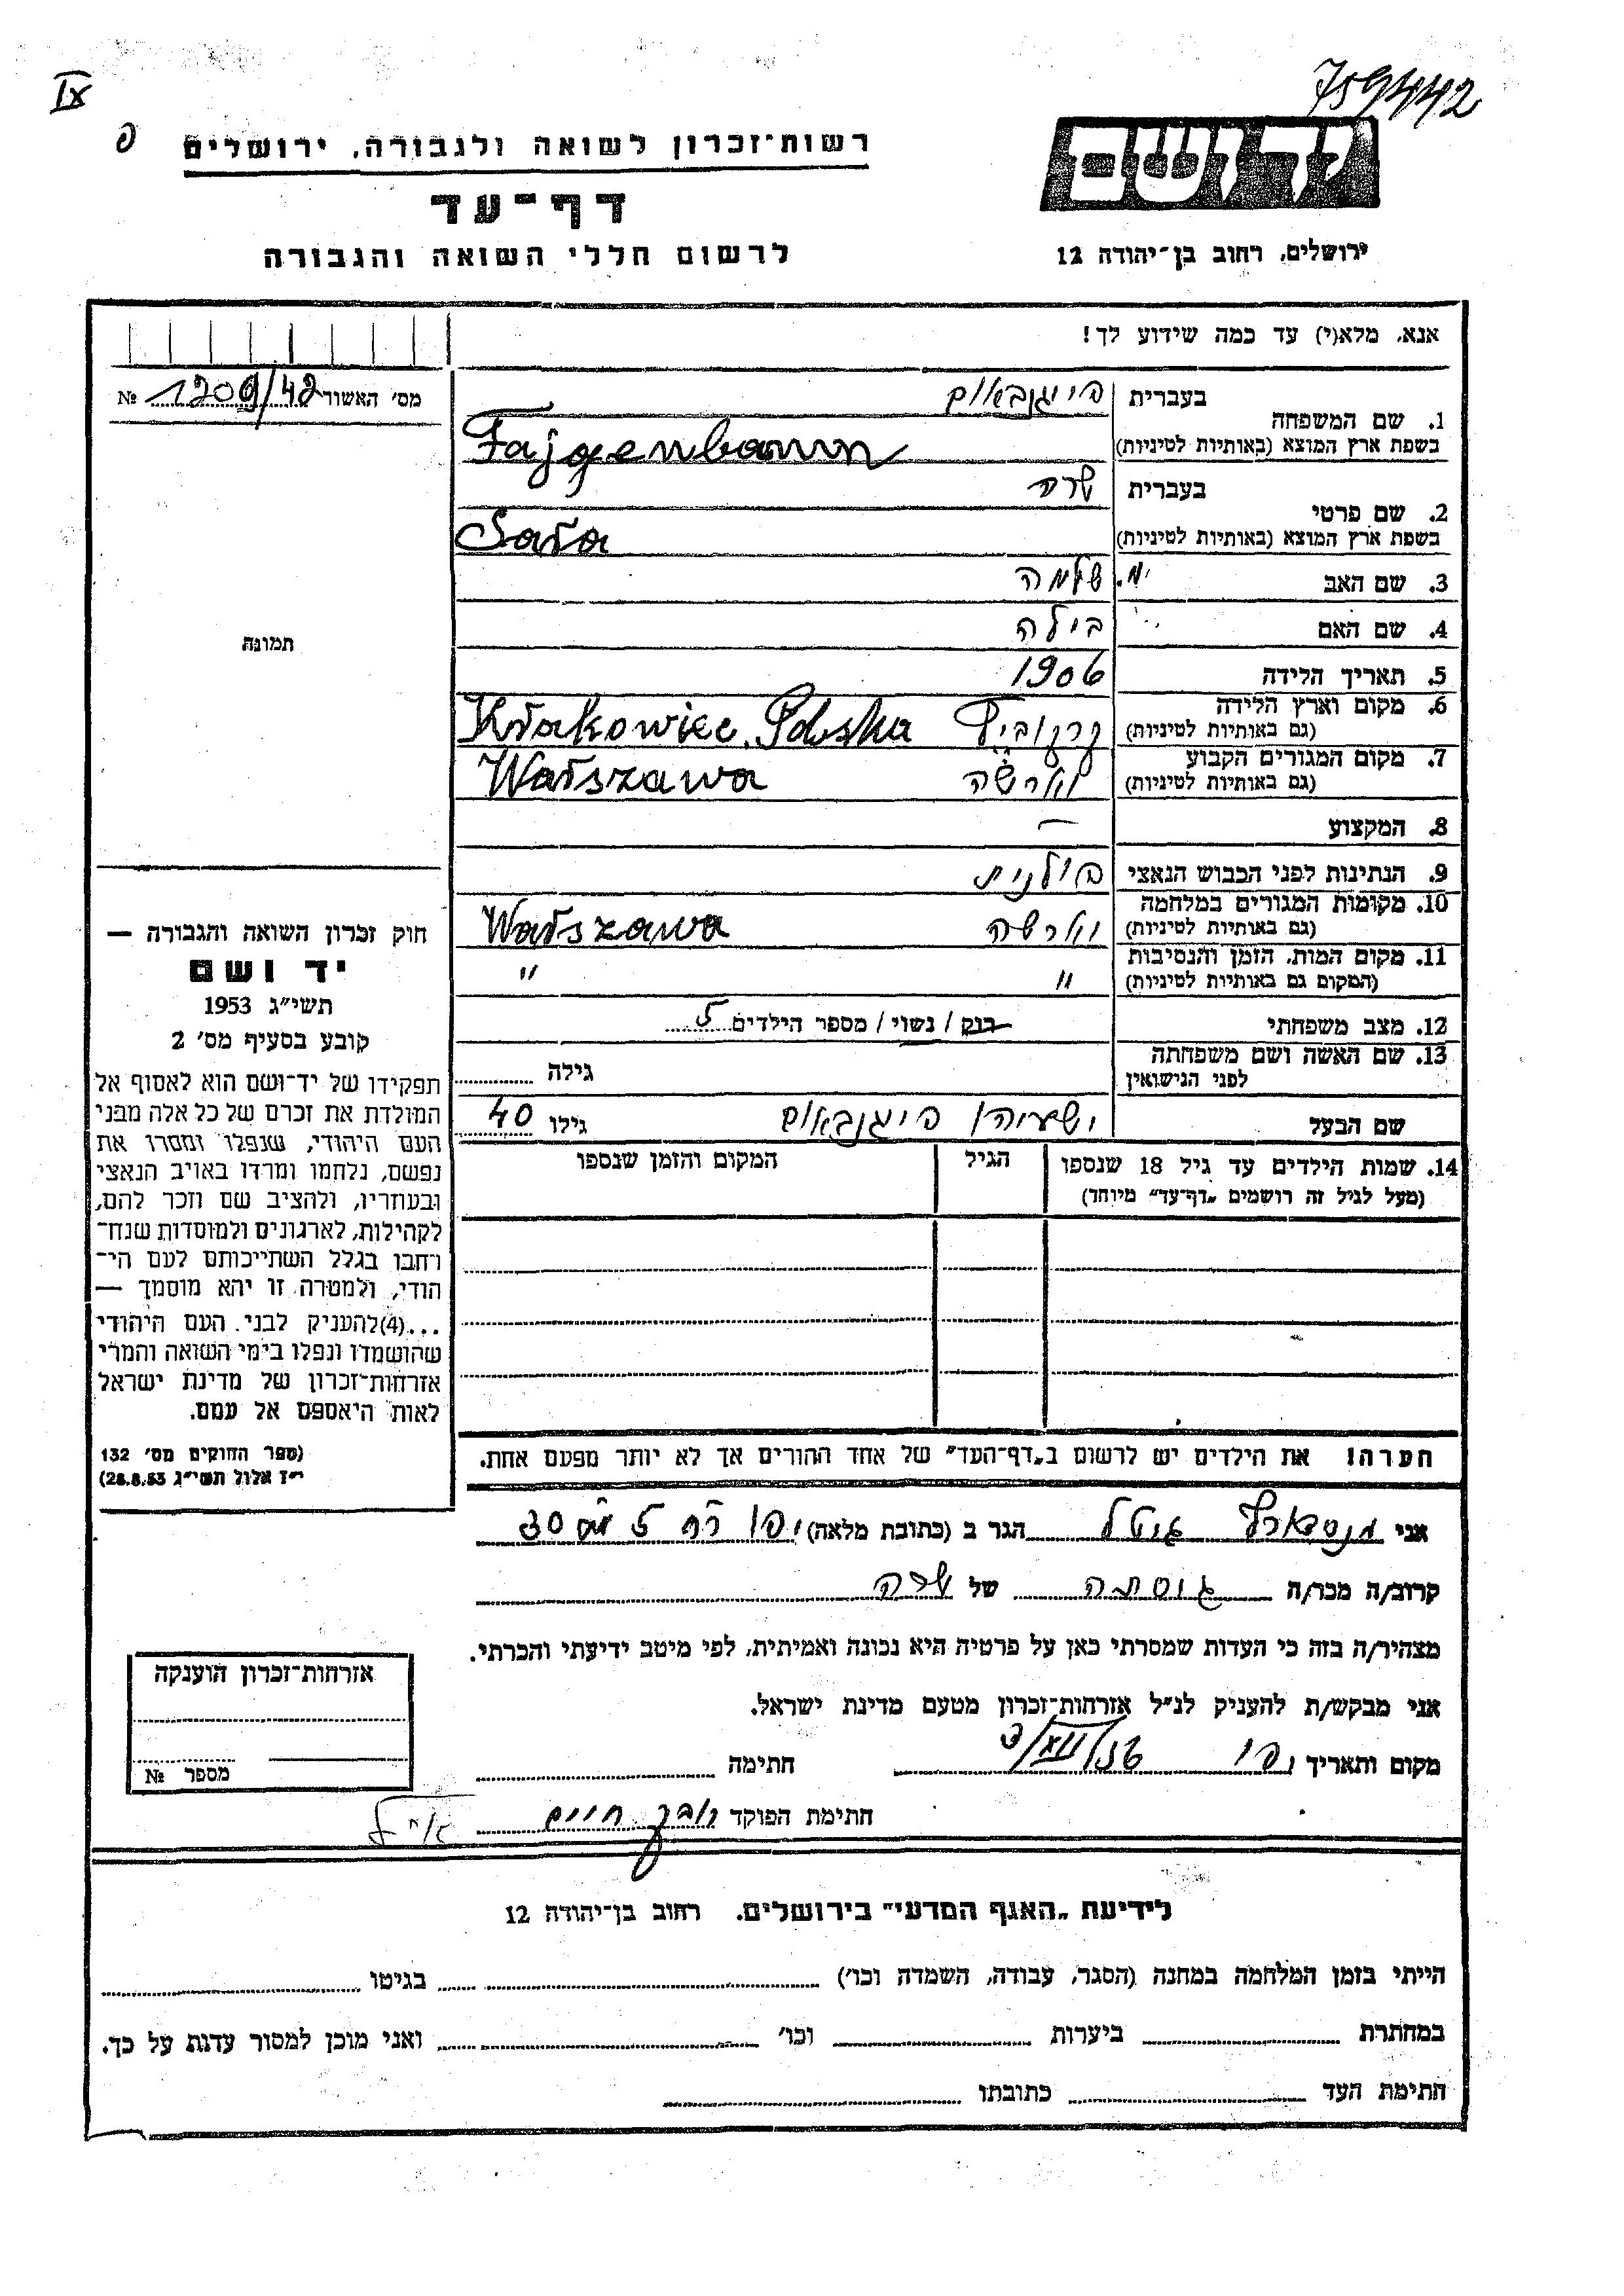 IX
759442
רשות־זכרון לשואה ולגבורה, ירושלים
יד ושם
דף־עד
לרשום חללי השואה והגבורה
ירושלים, רחוב בן־יהודה 12
אנא, מלא(י) עד כמה שידוע לך!
מס' האשור 1209/42 №
1. שם המשפחה בעברית פייגנבאום
בשפת ארץ המוצא (באותיות לטיניות) Fajgenbaum
2. שם פרטי בעברית שרה
בשפת ארץ המוצא (באותיות לטיניות) Sara
3. שם האב שלמה
4. שם האם בילה
5. תאריך הלידה 1906
6. מקום וארץ הלידה
(גם באותיות לטיניות) קרקוביץ Krakowiec, Polska
7. מקום המגורים הקבוע
(גם באותיות לטיניות) ווארשה Warszawa
8. המקצוע —
9. הנתינות לפני הכבוש הנאצי פולנית
10. מקומות המגורים במלחמה
(גם באותיות לטיניות) ווארשה Warszawa
11. מקום המות, הזמן והנסיבות
(המקום גם באותיות לטיניות) " "
12. מצב משפחתי רווק / נשוי / מספר הילדים 5
13. שם האשה ושם משפחתה
לפני הנישואין גילה
שם הבעל ישעיהו פייגנבאום גילו 40
14. שמות הילדים עד גיל 18 שנספו הגיל המקום והזמן שנספו
(מעל לגיל זה רושמים „דף־עד" מיוחד)
תמונה
חוק זכרון השואה והגבורה —
יד ושם
תשי"ג 1953
קובע בסעיף מס' 2
תפקידו של יד־ושם הוא לאסוף אל
המולדת את זכרם של כל אלה מבני
העם היהודי, שנפלו ומסרו את
נפשם, נלחמו ומרדו באויב הנאצי
ובעוזריו, ולהציב שם וזכר להם,
לקהילות, לארגונים ולמוסדות שנח־
רחבו בגלל השתייכותם לעם הי־
הודי, ולמטרה זו יהא מוסמך —
...(4)להעניק לבני העם היהודי
שהושמדו ונפלו בימי השואה והמרי
אזרחות־זכרון של מדינת ישראל
לאות היאספם אל עמם.
(ספר החוקים מס' 132
י"ז אלול תשי"ג 28.8.53)
הערה! את הילדים יש לרשום ב„דף־העד" של אחד ההורים אך לא יותר מפעם אחת.
אני גיטל הגר ב (כתובת מלאה) יפו רח 5 30
קרוב/ה מכר/ה גיסתה של שרה
מצהיר/ה בזה כי העדות שמסרתי כאן על פרטיה היא נכונה ואמיתית, לפי מיטב ידיעתי והכרתי.
אני מבקש/ת להעניק לנ"ל אזרחות־זכרון מטעם מדינת ישראל.
מקום ותאריך יפו חתימה
חתימת הפוקד חיים
אזרחות־זכרון הוענקה
מספר №
לידיעת „האגף המדעי" בירושלים, רחוב בן־יהודה 12
הייתי בזמן המלחמה במחנה (הסגר, עבודה, השמדה וכו') בגיטו
במחתרת ביערות וכו' ואני מוכן למסור עדות על כך.
חתימת העד כתובתו